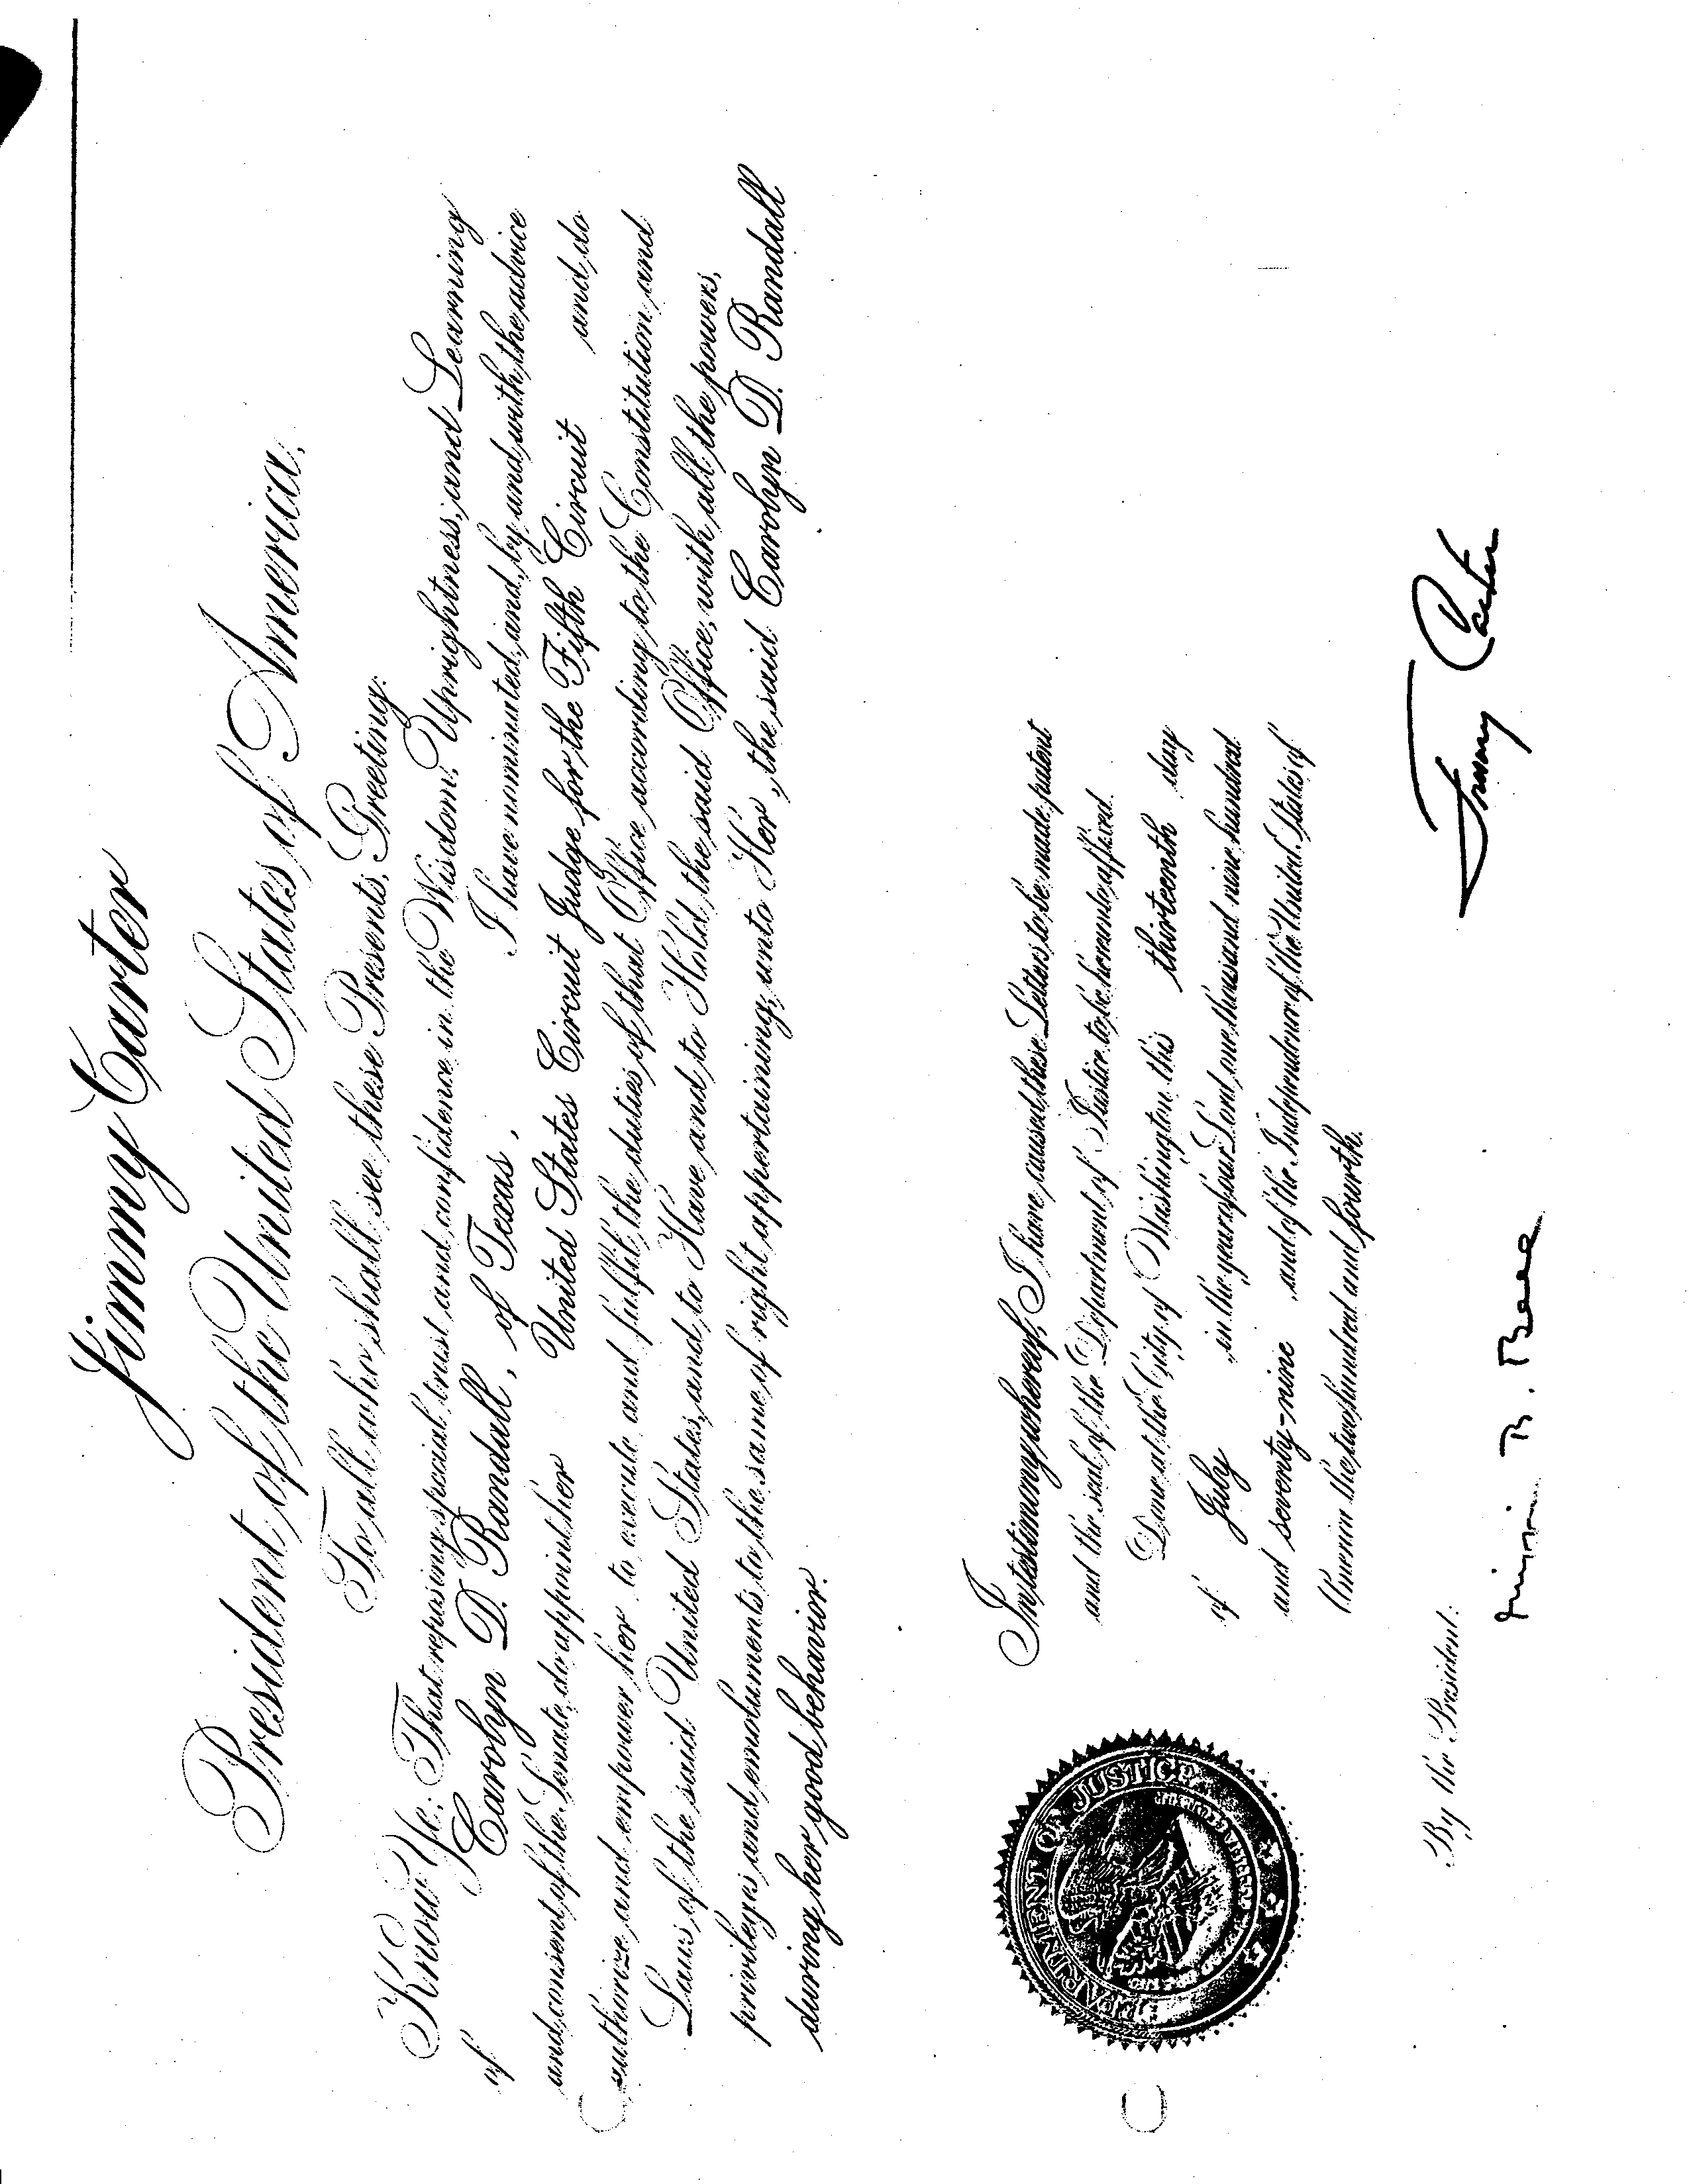 Jimmy Carter
President of the United States of America,
To all who shall see these Presents, Greeting:
Know Ye: That reposing special trust and confidence in the Wisdom, Uprightness, and Learning
of Carolyn D. Randall, of Texas, I have nominated, and, by and with the advice
and consent of the Senate, do appoint her United States Circuit Judge for the Fifth Circuit and do
authorize and empower her to execute and fulfil the duties of that Office according to the Constitution and
Laws of the said United States, and to Have and to Hold the said Office, with all the powers,
privileges and emoluments to the same of right appertaining, unto Her, the said Carolyn D. Randall
during her good behavior.
In testimony whereof, I have caused these Letters to be made patent
and the seal of the Department of Justice to be hereunto affixed.
Done at the City of Washington this thirteenth day
of July in the year of our Lord one thousand nine hundred
and seventy-nine and of the Independence of the United States of
America the two hundred and fourth.
DEPARTMENT OF JUSTICE
Jimmy Carter
By the President:
B. Bell